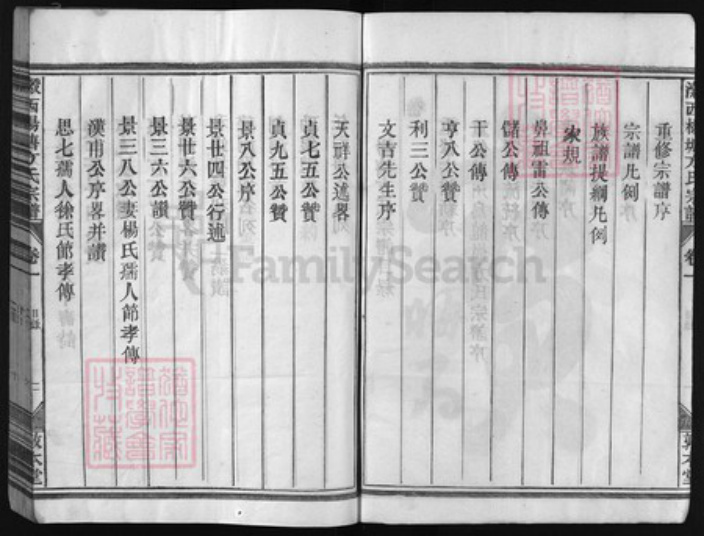 重修宗譜序
宗譜凡例
族譜提綱凡例
家規
鼻祖雷公傳
儲公傳
干公傳
亨八公贊
利三公贊
文吉先生序
天祥公述畧
貞七五公贊
貞九五公贊
景八公序
景廿四公行述
景廿六公贊
景三六公讚
景三八公妻楊氏孺人節孝傳
漢甫公序畧并讚
思七孺人徐氏節孝傳
西楊塘方氏宗譜
卷一
目錄
敦本堂
FamilySearch